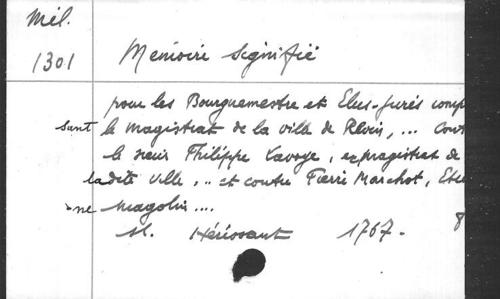 Mél.
1301
Mémoire signifié
pour les Bourguemestre et Elus-jurés comp
sant le magistrat de la ville de Revin, ... Cont
le sieur Philippe Lavoye, ex magistrat de
ladite ville, .. et contre Pierre Marchot, Etie
-ne Magolin ....
sl. Hérissant 1767. 8